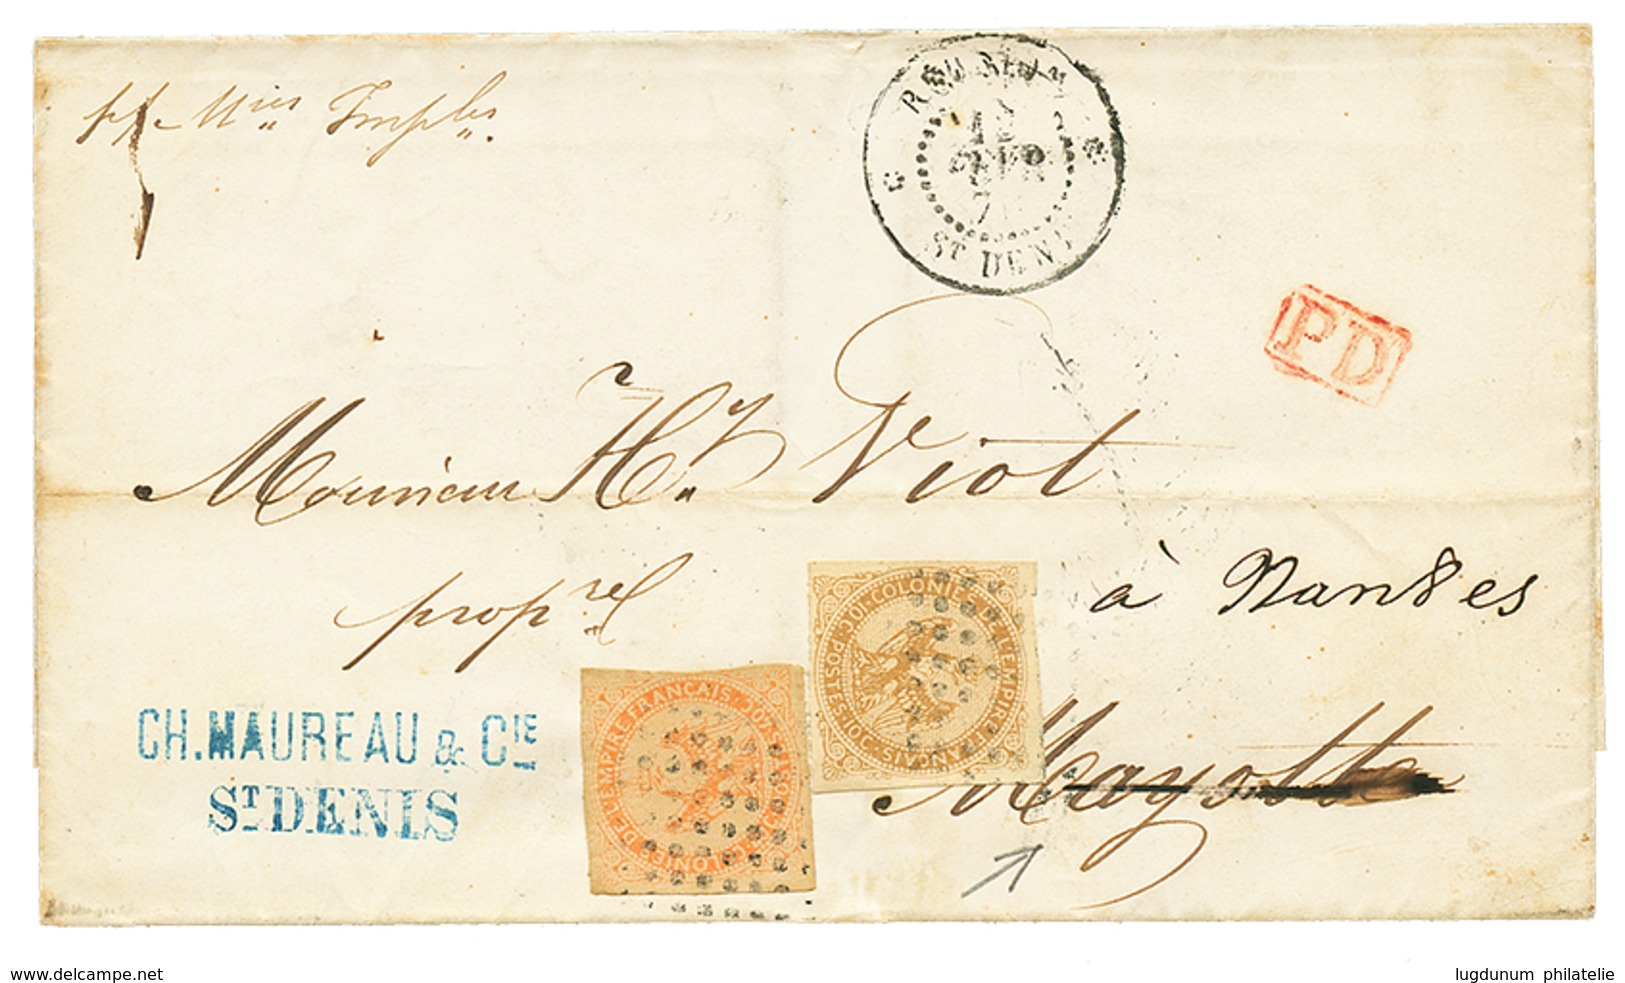 pr Mies Imples.
RÉUNION
12
FEVR
7
ST DENIS
PD
Monsieur Hy. Viot
à Nantes
propre
COLONIES DE L'EMPIRE FRANÇAIS·10C·POSTES·10C·
COLONIES DE L'EMPIRE FRANÇAIS·
Mayotte
CH.MAUREAU & CIE
ST DENIS
www.delcampe.net
lugdunum philatelie